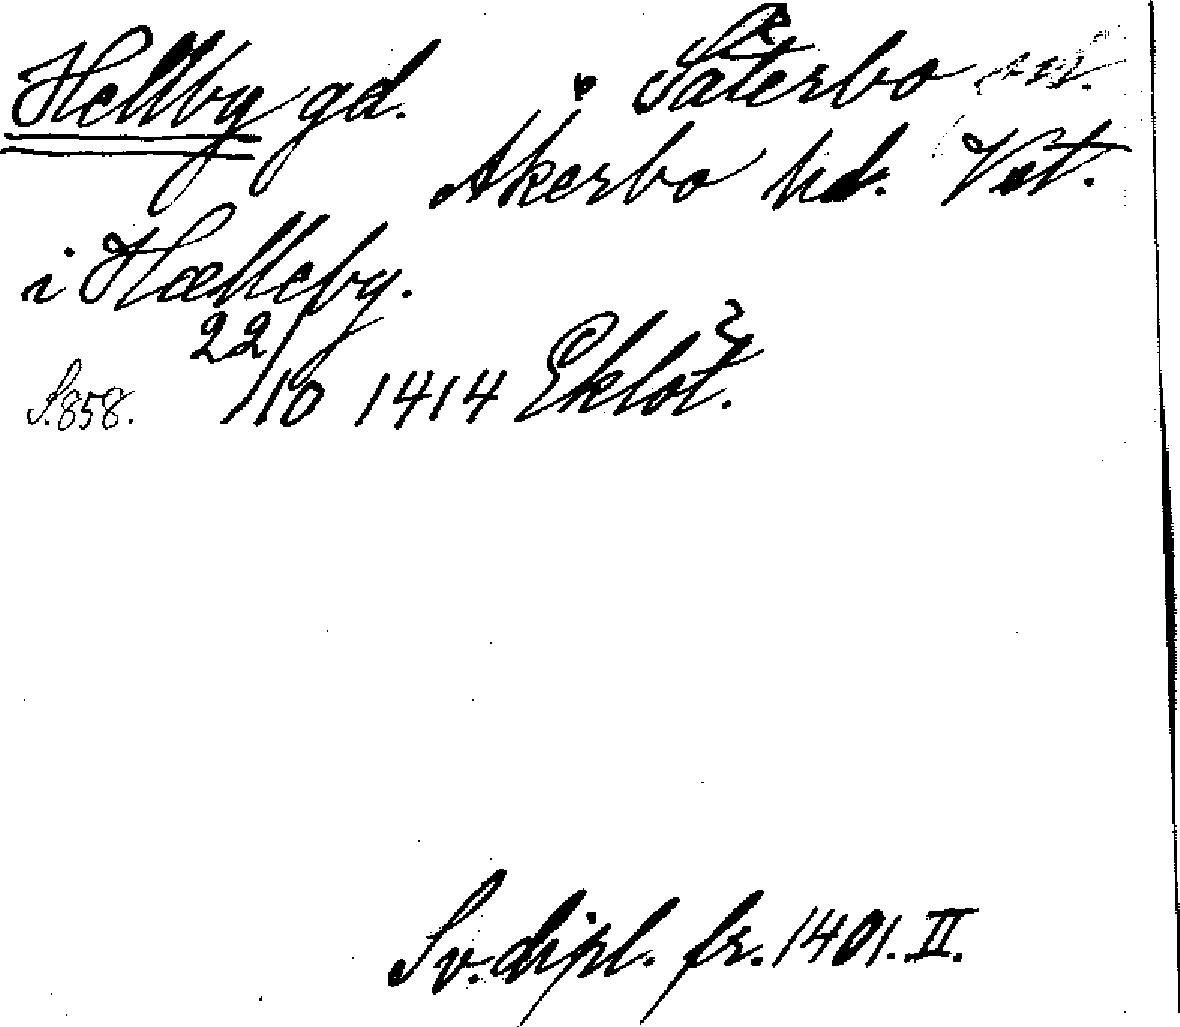 Hellby gd. Säterbo sn.
Åkerbo hd. Vst.
i Hælleby.
22/10 1414 Eklöt.
S. 858.
Sv. dipl. fr. 1401. II.